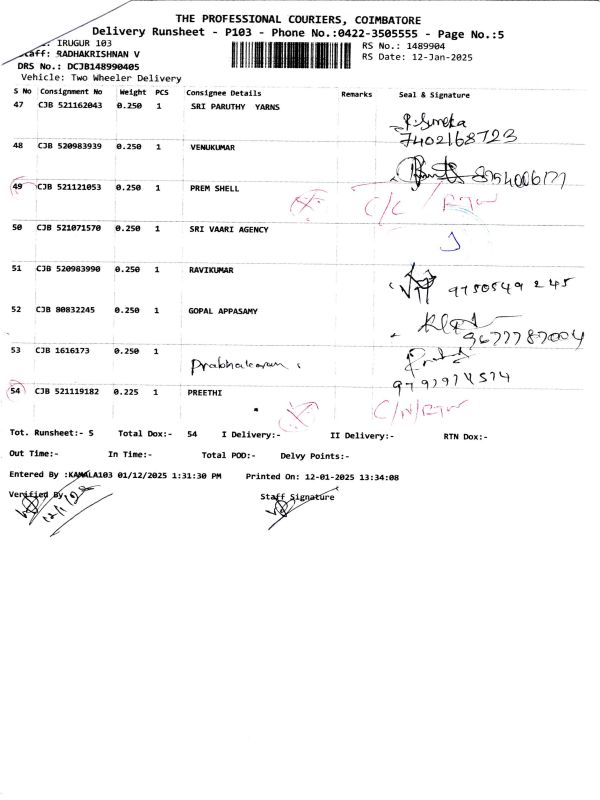 THE PROFESSIONAL COURIERS, COIMBATORE
Delivery Runsheet - P103 - Phone No.:0422-3505555 - Page No.:5
: IRUGUR 103
taff: RADHAKRISHNAN V
DRS No.: DCJB148990405
Vehicle: Two Wheeler Delivery
RS No.: 1489904
RS Date: 12-Jan-2025
S No Consignment No Weight PCS Consignee Details Remarks Seal & Signature
47 CJB 521162043 0.250 1 SRI PARUTHY YARNS
7402168723
48 CJB 520983939 0.250 1 VENUKUMAR
49 CJB 521121053 0.250 1 PREM SHELL
50 CJB 521071570 0.250 1 SRI VAARI AGENCY
51 CJB 520983990 0.250 1 RAVIKUMAR
9750549245
52 CJB 80832245 0.250 1 GOPAL APPASAMY
9677787004
53 CJB 1616173 0.250 1 Prabhakaran
54 CJB 521119182 0.225 1 PREETHI
Tot. Runsheet:- 5 Total Dox:- 54 I Delivery:- II Delivery:- RTN Dox:-
Out Time:- In Time:- Total POD:- Delvy Points:-
Entered By :KAMALA103 01/12/2025 1:31:30 PM Printed On: 12-01-2025 13:34:08
Verified By Staff Signature